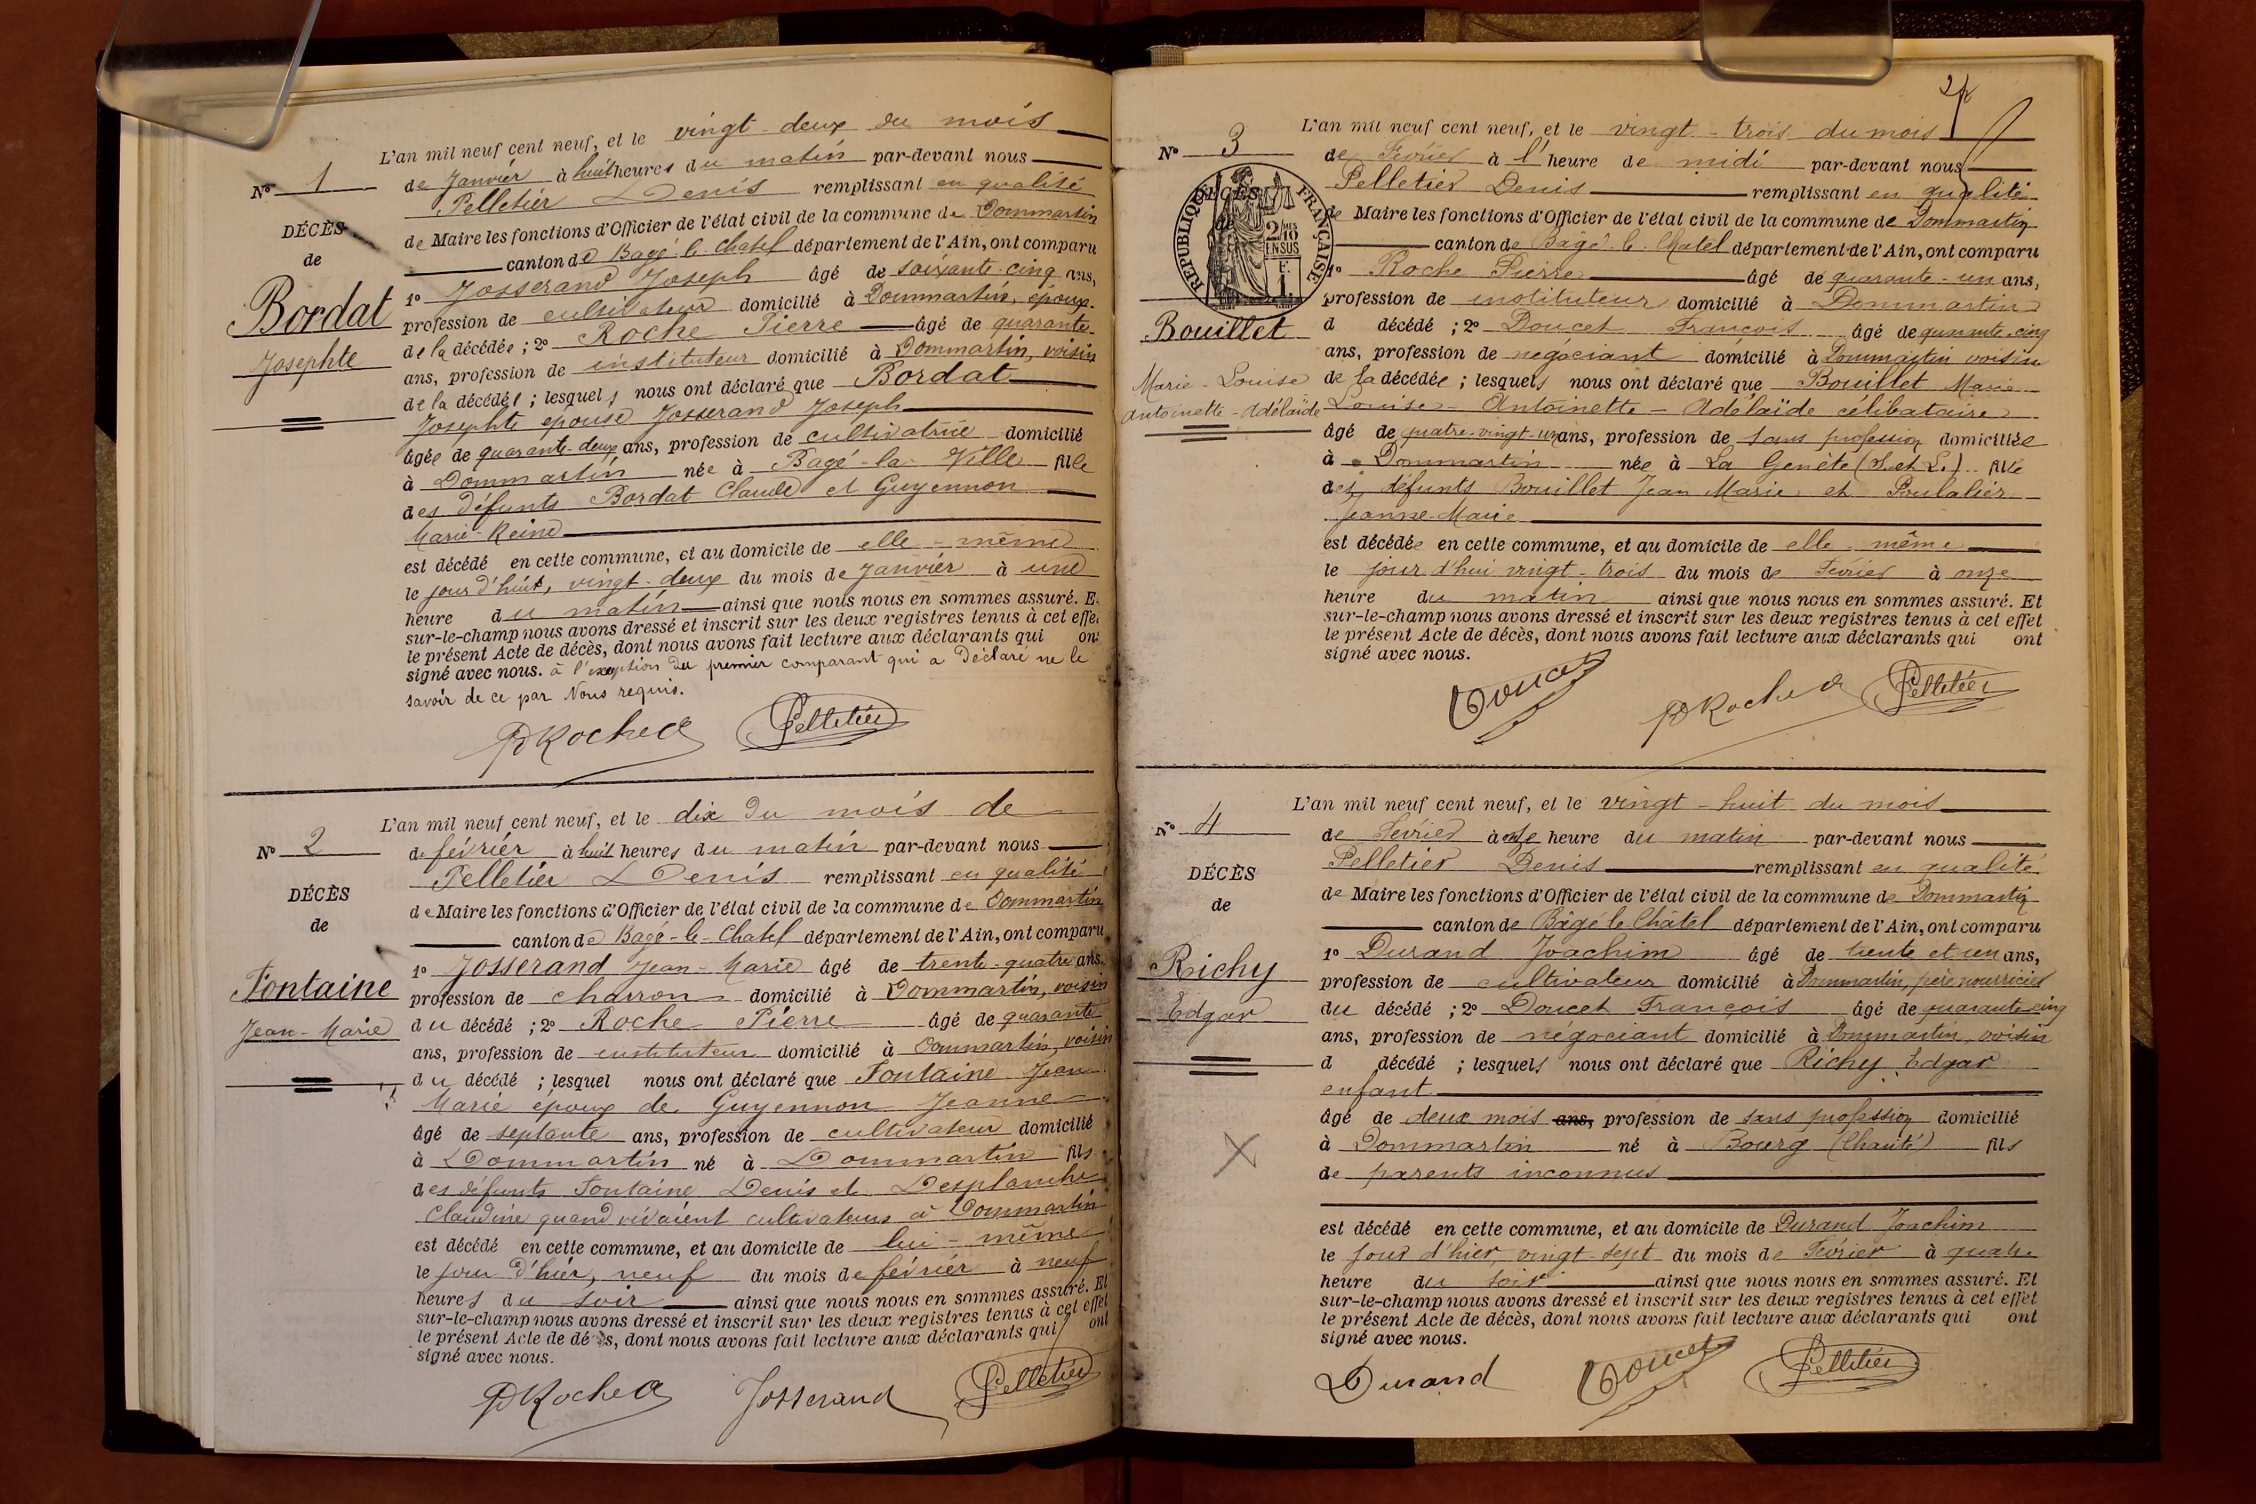 L'an mil neuf cent neuf, et le vingt-deux du mois
N° 1
de Janvier à huit heures du matin par-devant nous
Pelletier Denis remplissant en qualité
DÉCÈS
de Maire les fonctions d'Officier de l'état civil de la commune de Dommartin
de
canton de Bagé-le-Chatel département de l'Ain, ont comparu
Bordat
Josephte
1° Josserand Joseph âgé de soixante-cinq ans,
profession de cultivateur domicilié à Dommartin, époux
de la décédée ; 2° Roche Pierre âgé de quarante
ans, profession de instituteur domicilié à Dommartin, voisin
de la décédée ; lesquels nous ont déclaré que Bordat
Josephte épouse Josserand Joseph
âgée de quarante-deux ans, profession de cultivatrice domicilié
à Dommartin née à Bagé-la-Ville fille
des défunts Bordat Claude et Guyennon
Marie-Reine
est décédé en cette commune, et au domicile de elle-même
le jour d'huit, vingt-deux du mois de Janvier à une
heure du matin ainsi que nous nous en sommes assuré. E
sur-le-champ nous avons dressé et inscrit sur les deux registres tenus à cet effe
le présent Acte de décès, dont nous avons fait lecture aux déclarants qui ont
signé avec nous. à l'exception du premier comparant qui a déclaré ne le
savoir de ce par Nous requis.
PRoche Pelletier
L'an mil neuf cent neuf, et le dix du mois de
N° 2
de février à huit heures du matin par-devant nous
Pelletier Denis remplissant en qualité
DÉCÈS
de Maire les fonctions d'Officier de l'état civil de la commune de Dommartin
de
canton de Bagé-le-Chatel département de l'Ain, ont comparu
Fontaine
Jean-Marie
1° Josserand Jean-Marie âgé de trente-quatre ans,
profession de charron domicilié à Dommartin, voisin
du décédé ; 2° Roche Pierre âgé de quarante
ans, profession de instituteur domicilié à Dommartin, voisin
du décédé ; lesquel nous ont déclaré que Fontaine Jean
Marie époux de Guyennon Jeanne
âgé de septante ans, profession de cultivateur domicilié
à Dommartin né à Dommartin fils
des défunts Fontaine Denis et Desplanche
Claudine quand vivaient cultivateurs à Dommartin
est décédé en cette commune, et au domicile de lui-même
le jour d'hier, neuf du mois de février à neuf
heures du soir ainsi que nous nous en sommes assuré. Et
sur-le-champ nous avons dressé et inscrit sur les deux registres tenus à cet effet
le présent Acte de décès, dont nous avons fait lecture aux déclarants qui ont
signé avec nous.
PRoche Josserand Pelletier
L'an mil neuf cent neuf, et le vingt-trois du mois
N° 3
de Février à l'heure de midi par-devant nous
Pelletier Denis remplissant en qualité
DÉCÈS
de
RÉPUBLIQUE FRANÇAISE
2/10 EN SUS
de Maire les fonctions d'Officier de l'état civil de la commune de Dommartin
canton de Bâgé-le-Chatel département de l'Ain, ont comparu
1° Roche Pierre âgé de quarante-un ans,
profession de instituteur domicilié à Dommartin
Bouillet
Marie-Louise
Antoinette-Adélaïde
d décédé ; 2° Doucet François âgé de quarante-cinq
ans, profession de négociant domicilié à Dommartin voisin
de la décédée ; lesquels nous ont déclaré que Bouillet Marie
Louise-Antoinette-Adélaïde célibataire
âgé de quatre-vingt-un ans, profession de sans profession domiciliée
à Dommartin née à La Genête (S. et L.) fille
des défunts Bouillet Jean Marie et Poulalier
Jeanne-Marie
est décédée en cette commune, et au domicile de elle même
le jour d'hui vingt-trois du mois de Février à onze
heure du matin ainsi que nous nous en sommes assuré. Et
sur-le-champ nous avons dressé et inscrit sur les deux registres tenus à cet effet
le présent Acte de décès, dont nous avons fait lecture aux déclarants qui ont
signé avec nous.
Doucet PRoche Pelletier
L'an mil neuf cent neuf, et le vingt-huit du mois
N° 4
de Février à onze heure du matin par-devant nous
Pelletier Denis remplissant en qualité
DÉCÈS
de Maire les fonctions d'Officier de l'état civil de la commune de Dommartin
de
canton de Bâgé le Châtel département de l'Ain, ont comparu
Richy
Edgar
1° Durand Joachim âgé de trente et un ans,
profession de cultivateur domicilié à Dommartin, père nourricier
du décédé ; 2° Doucet François âgé de quarante-cinq
ans, profession de négociant domicilié à Dommartin, voisin
d décédé ; lesquels nous ont déclaré que Richy Edgar
enfant
âgé de deux mois ans, profession de sans profession domicilié
à Dommartin né à Bourg (Charité) fils
de parents inconnus
est décédé en cette commune, et au domicile de Durand Joachim
le jour d'hier, vingt-sept du mois de Février à quatre
heure du soir ainsi que nous nous en sommes assuré. Et
sur-le-champ nous avons dressé et inscrit sur les deux registres tenus à cet effet
le présent Acte de décès, dont nous avons fait lecture aux déclarants qui ont
signé avec nous.
Durand Doucet Pelletier